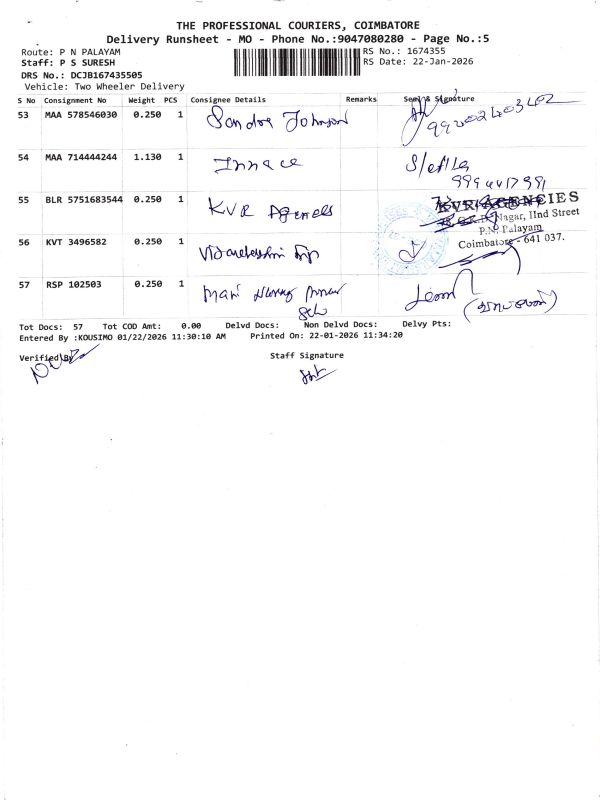 THE PROFESSIONAL COURIERS, COIMBATORE
Delivery Runsheet - MO - Phone No.:9047080280 - Page No.:5
Route: P N PALAYAM
RS No.: 1674355
Staff: P S SURESH
RS Date: 22-Jan-2026
DRS No.: DCJB167435505
Vehicle: Two Wheeler Delivery
S No Consignment No Weight PCS Consignee Details Remarks Seal & Signature
53 MAA 578546030 0.250 1 Sandra Johnson
54 MAA 714444244 1.130 1
55 BLR 5751683544 0.250 1 KVR Agencies
KVR AGENCIES
Nagar, IInd Street
P.N. Palayam
Coimbatore - 641 037.
56 KVT 3496582 0.250 1
57 RSP 102503 0.250 1 Mani
Tot Docs: 57 Tot COD Amt: 0.00 Delvd Docs: Non Delvd Docs: Delvy Pts:
Entered By :KOUSIMO 01/22/2026 11:30:10 AM Printed On: 22-01-2026 11:34:20
Verified By
Staff Signature